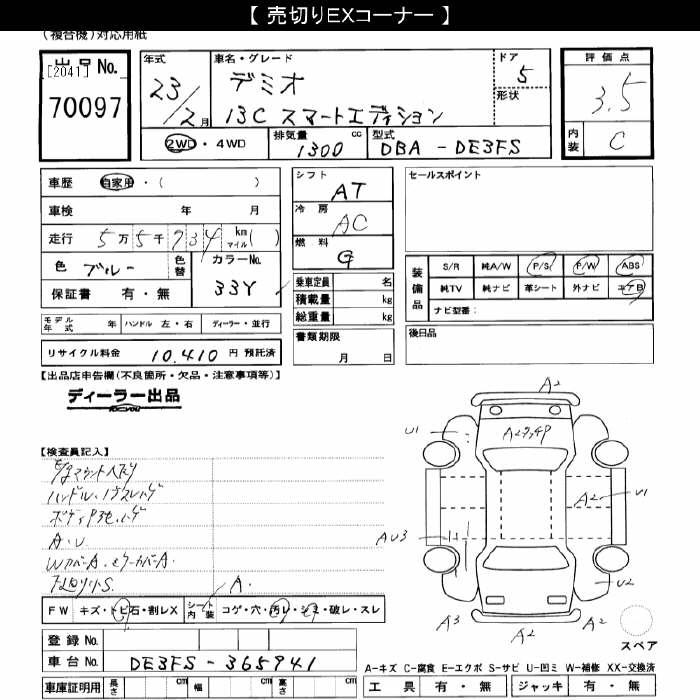 【 売切りEXコーナー 】
(複合機)対応用紙
出品 No.
[2041]
70097
年式
23/2月
車名・グレード
デミオ
13C スマートエディション
ドア
5
形状
評価点
3.5
内装
C
2WD・4WD
排気量
1300 cc
型式
DBA - DE3FS
車歴 自家用・( )
車検 年 月
走行 5万5千934 km マイル( )
色 ブルー
色替
カラーNo.
33Y
保証書 有・無
シフト
AT
冷房
AC
燃料
G
乗車定員 名
積載量 kg
総重量 kg
セールスポイント
装備品
S/R 純A/W P/S P/W ABS
純TV 純ナビ 革シート 外ナビ エアB
ナビ型番:
モデル年式 年 ハンドル 左・右 ディーラー・並行
書類期限
月 日
後日品
リサイクル料金 10,410 円 預託済
【出品店申告欄(不良箇所・欠品・注意事項等)】
ディーラー出品
【検査員記入】
A.U
A2
U1
A2
U1
AU3
U2
A3
A2
A2
スペア
A.
FW キズ・トビ石・割レX
シート内装 コゲ・穴・汚レ・シミ・破レ・スレ
登録 No.
車台 No. DE3FS - 365941
車庫証明用 長さ cm 幅 cm 高さ cm
A-キズ C-腐食 E-エクボ S-サビ U-凹ミ W-補修 XX-交換済
工具 有・無 ジャッキ 有・無